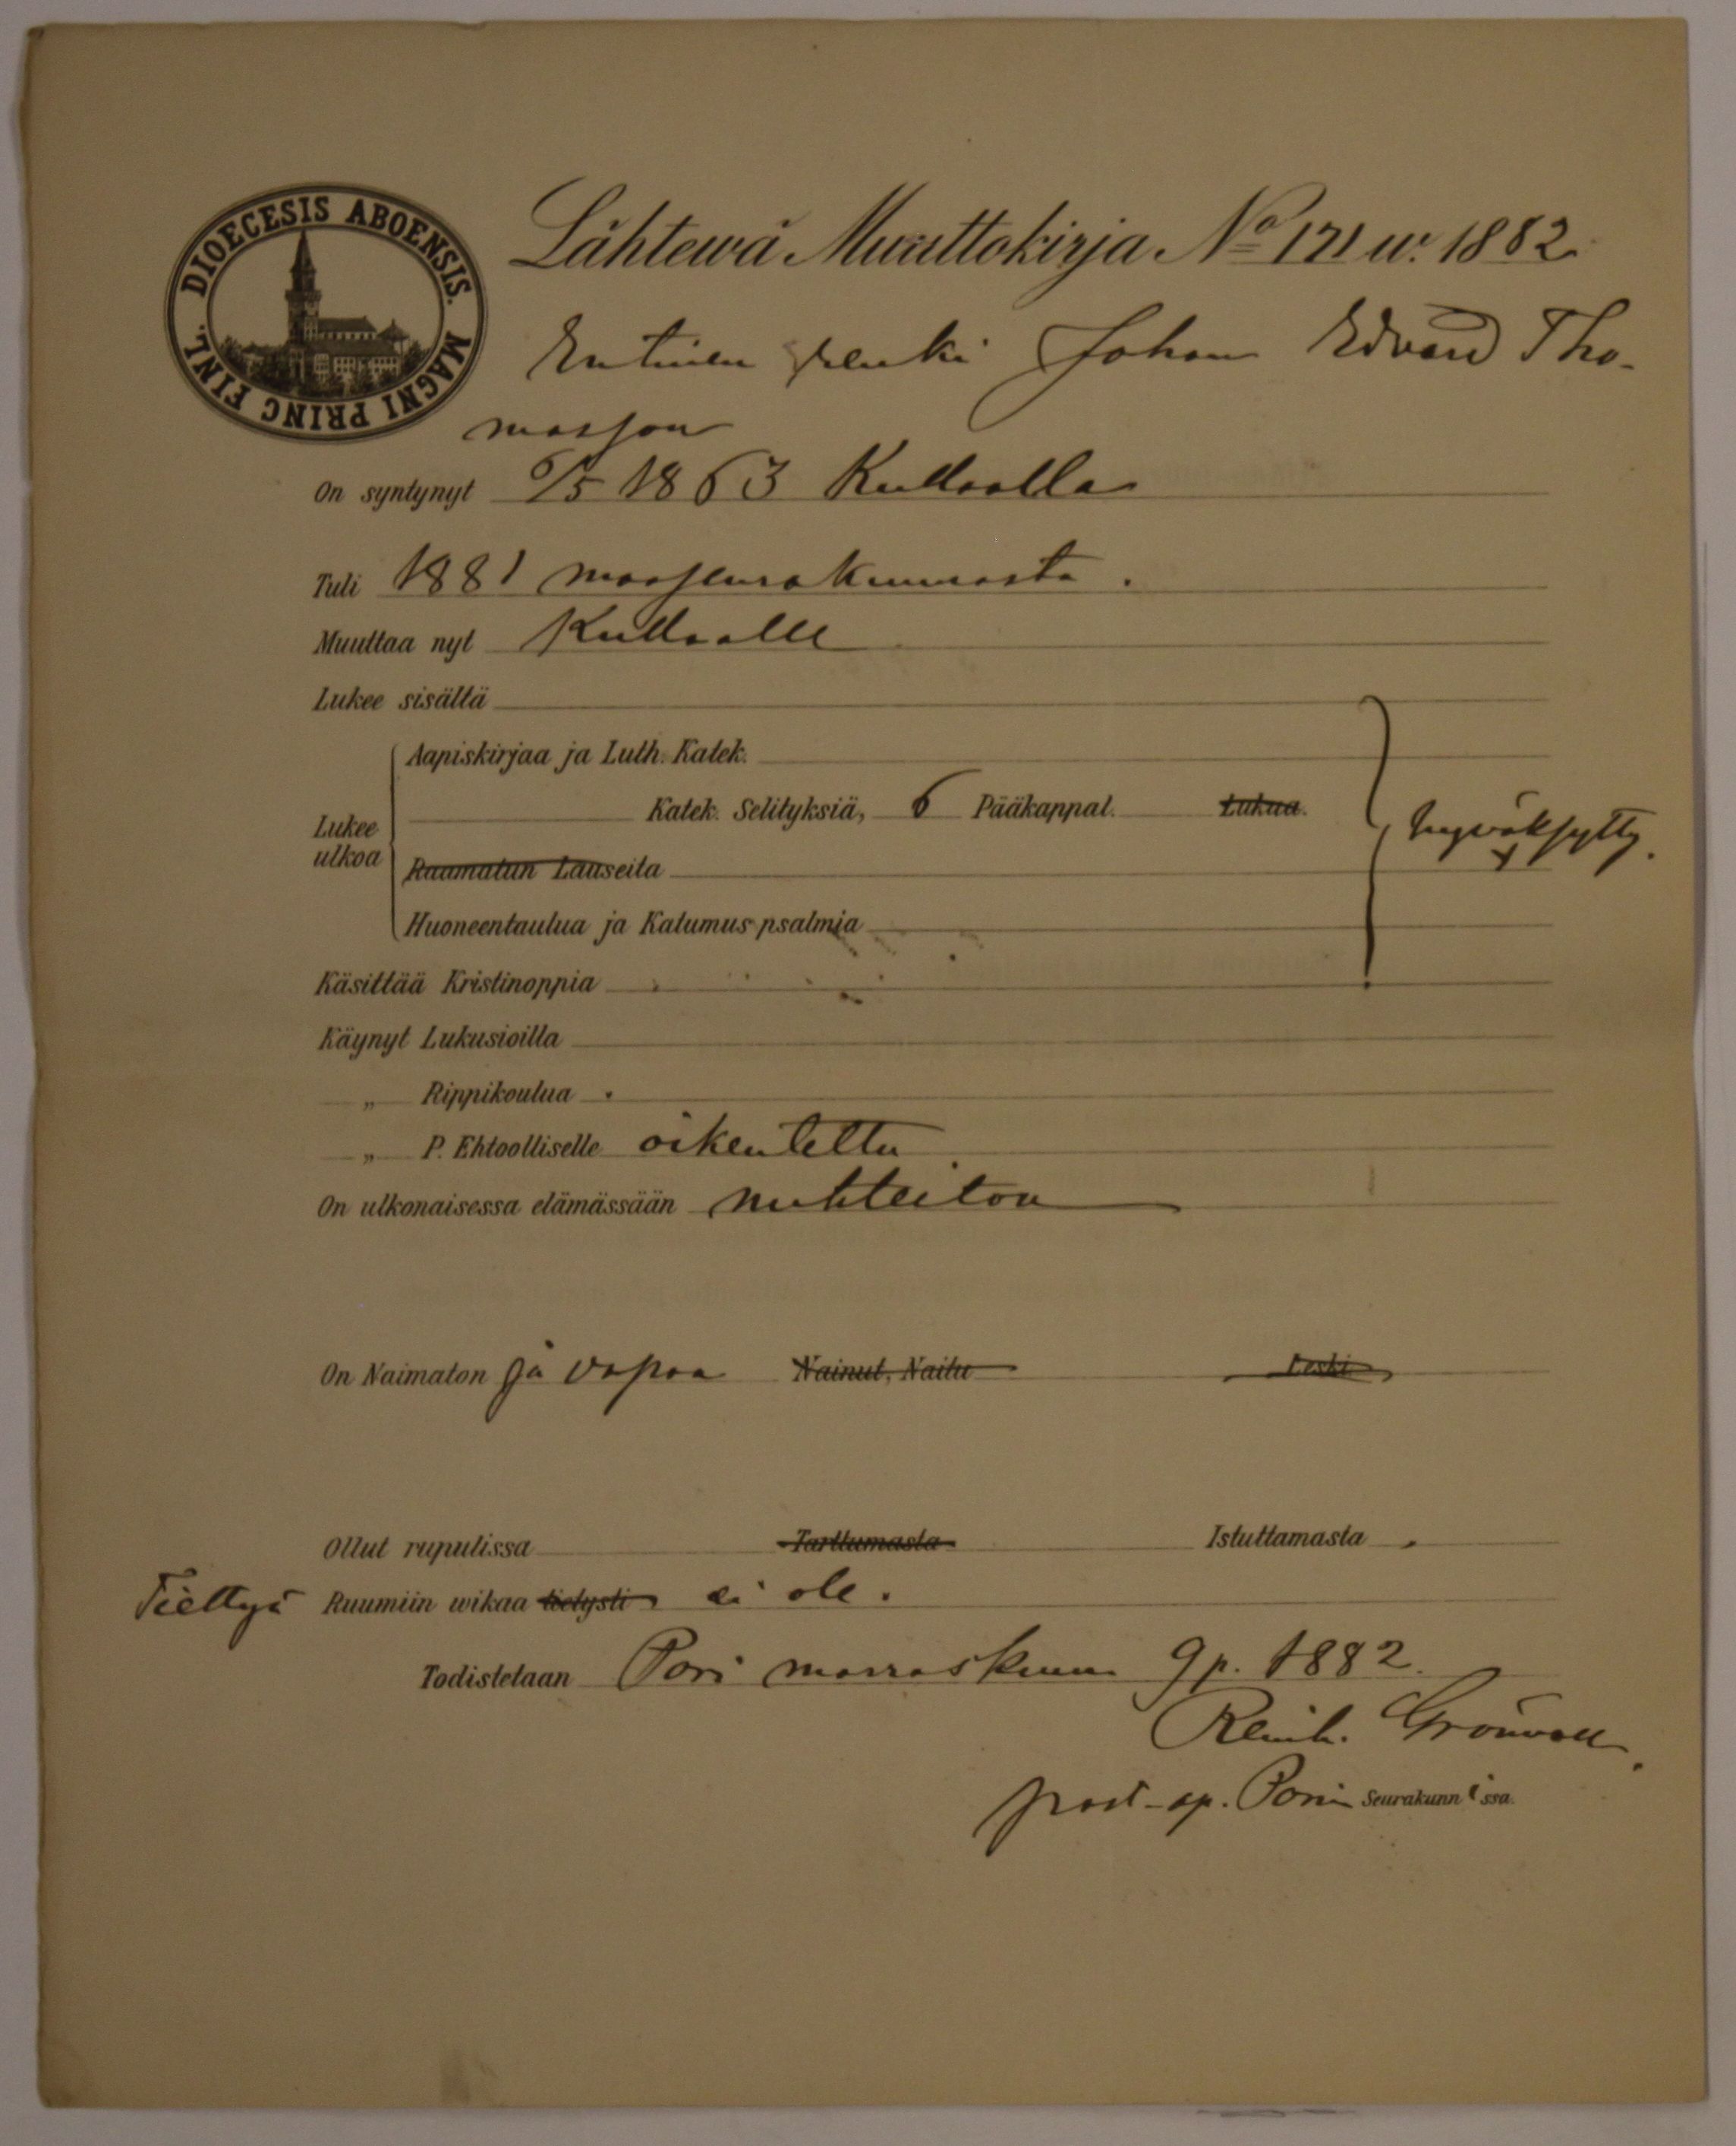 DIOECESIS ABOENSIS. MAGNI PRINC FINL.
Lähtewä Muuttokirja No 171 w. 1882
Entinen renki Johan Edvard Tho-
masson
On syntynyt 6/5 1863 Kullaalla
Tuli 1881 maaseurakunnasta.
Muuttaa nyt Kullaalle
Lukee sisältä
Lukee ulkoa
Aapiskirjaa ja Luth. Katek.
Katek. Selityksiä, 6 Pääkappal. Lukua.
hyväksytty.
Raamatun Lauseita
Huoneentaulua ja Katumus psalmia
Käsittää Kristinoppia
Käynyt Lukusioilla
„ Rippikoulua
„ P. Ehtoolliselle oikeutettu
On ulkonaisessa elämässään nuhteeton
On Naimaton ja vapaa Nainut, Naitu Leski
Ollut rupulissa Tarttumasta Istuttamasta
Tiettyä Ruumiin wikaa tietysti ei ole.
Todistetaan Pori marraskuun 9 p. 1882.
Reinh. Grönvall
past-ap. Porin Seurakunnissa.